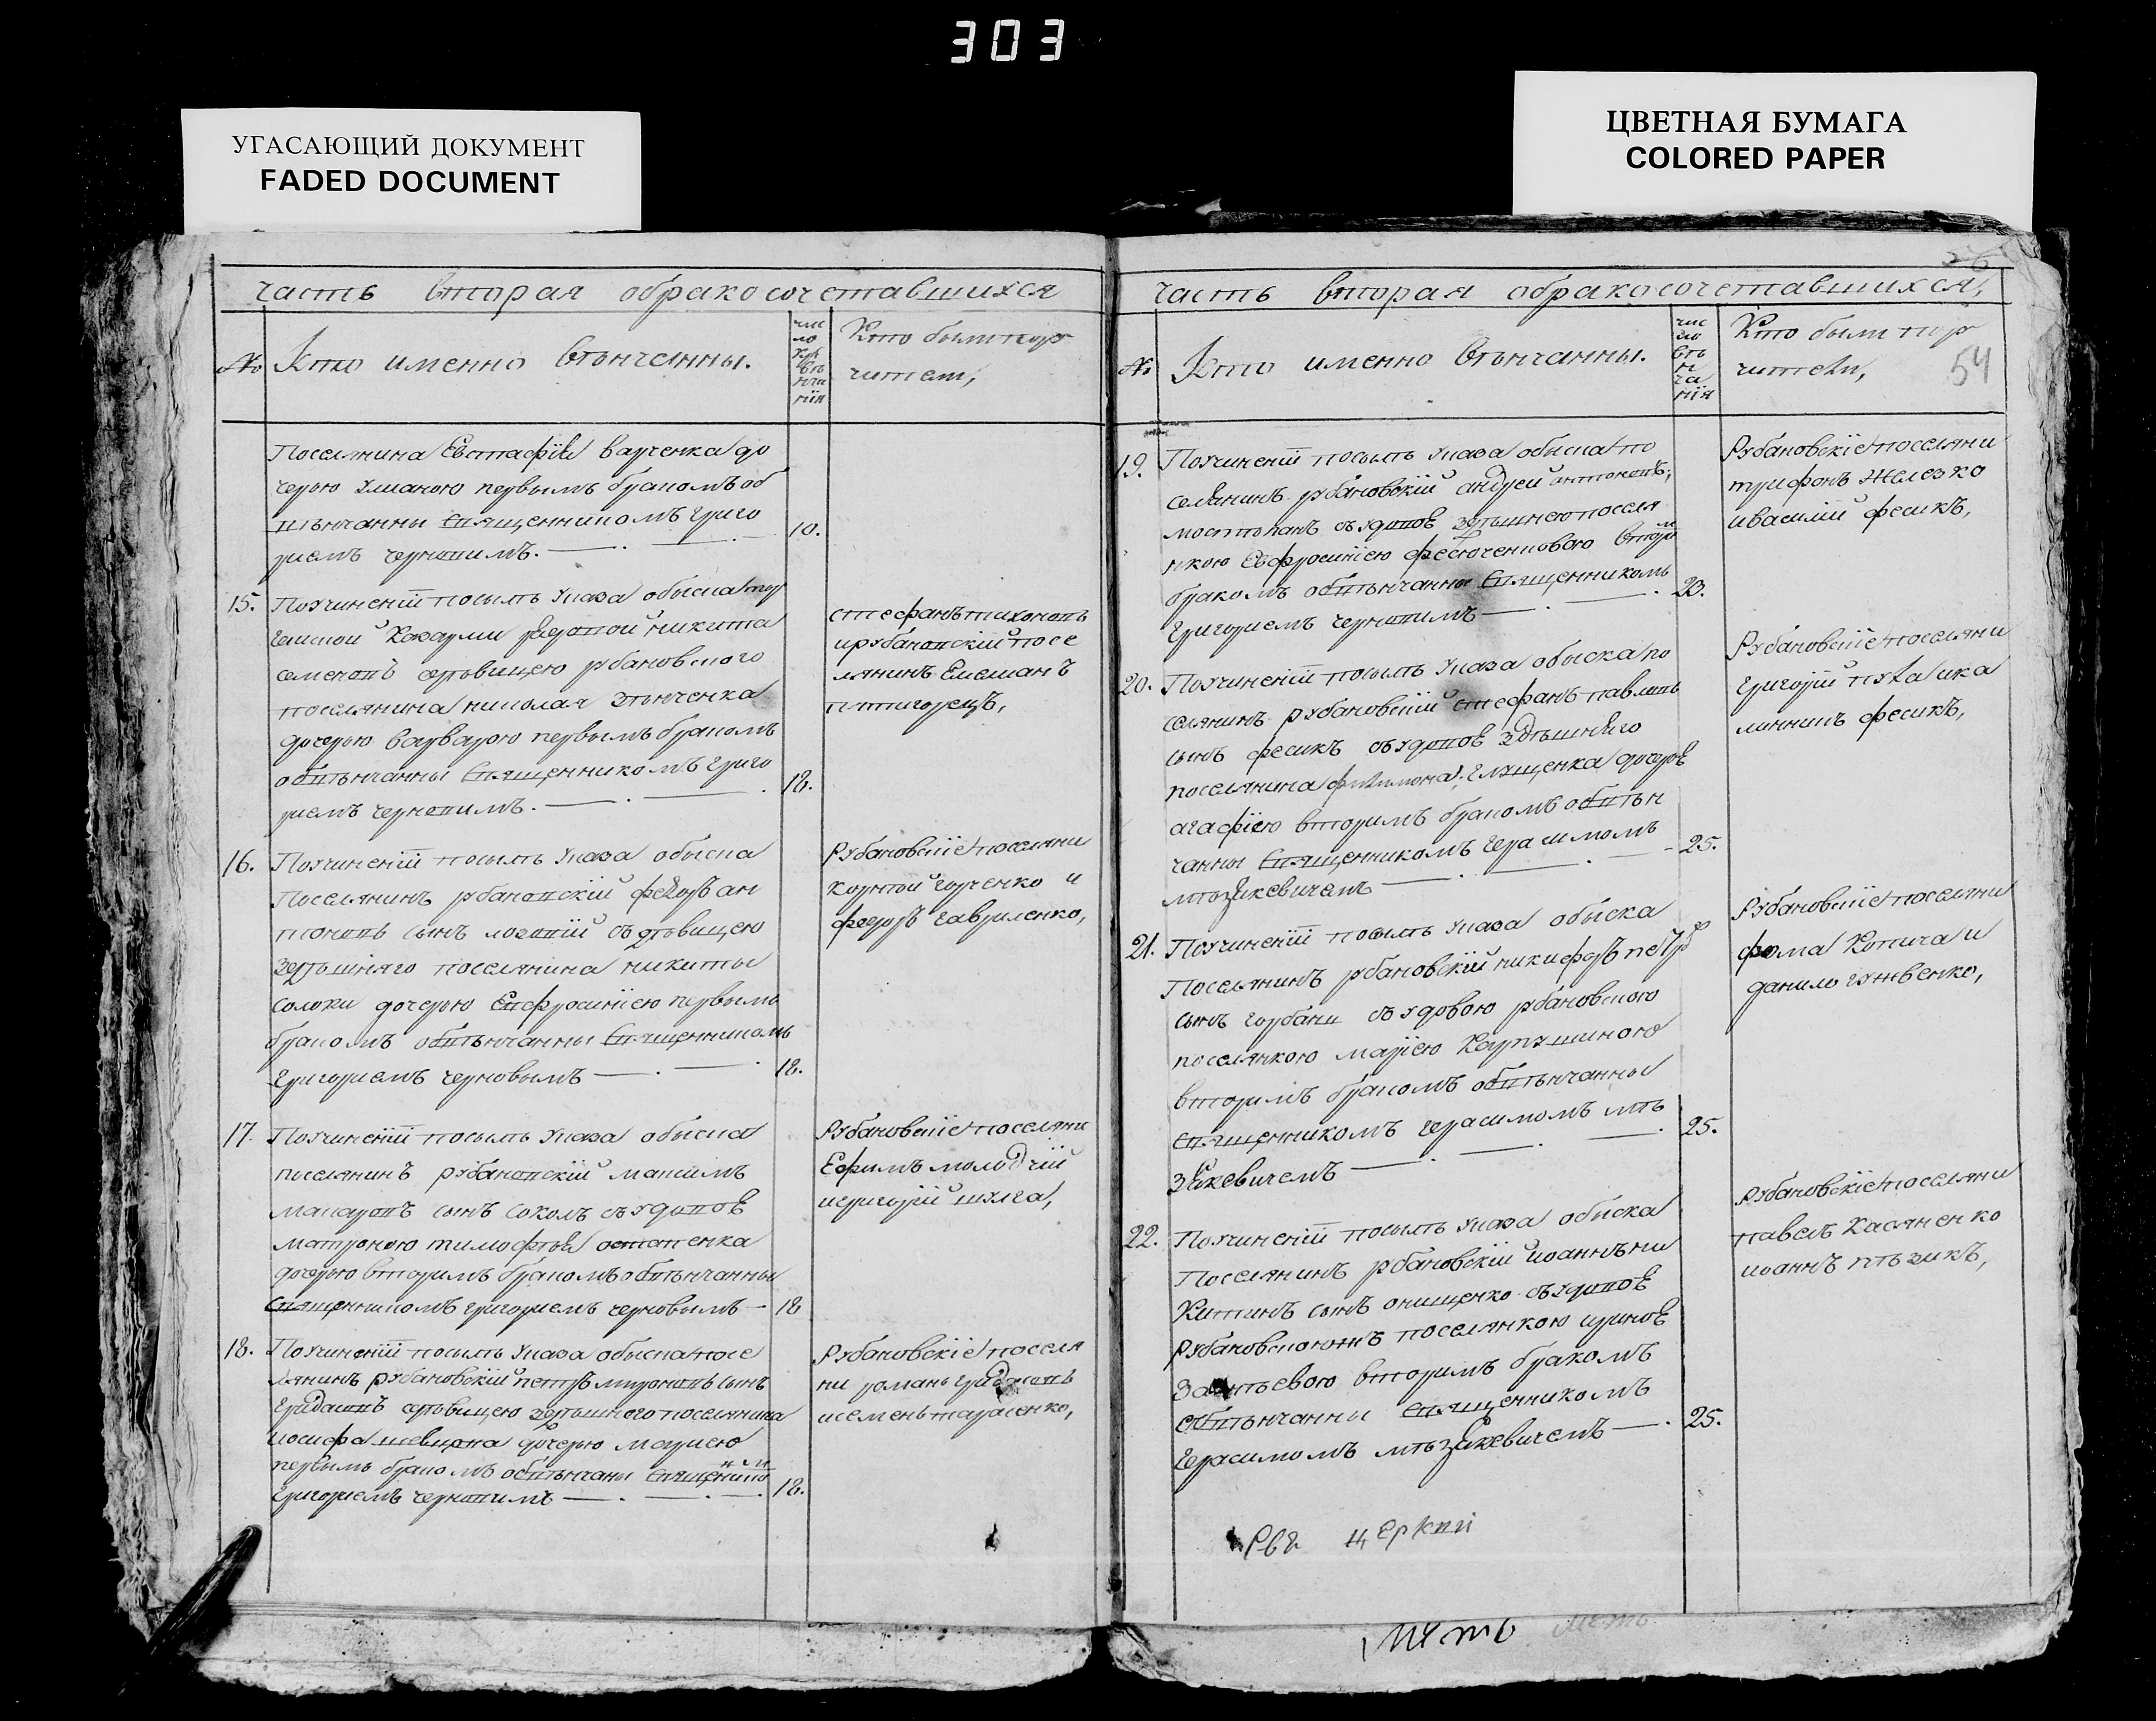 303
УГАСАЮЩИЙ ДОКУМЕНТ
FADED DOCUMENT
ЦВЕТНАЯ БУМАГА
COLORED PAPER
часть вторая обракосочетавшихся
№
Кто именно вѣнчанны.
чис
ло
вѣ
нча
нія
Кто были пору
чители,
Поселянина Евстафія варченка до
черью Улианою первымъ бракомъ об
вѣнчанны Священникомъ Григо
риемъ черновимъ.
10.
15. Поучинении посилъ Указа обыска
Никита
семеновъ здѣвицею рубановского
поселянина николая
дочерью варварою первымъ бракомъ
обвѣнчанны Священникомъ Григо
риемъ черновимъ.
18.
стефанъ тихоновъ
ирубановский посе
лянинъ Емелианъ
пятигорецъ,
16. Поучинении посилъ Указа обыска
Поселянинъ рубановский федоръ ан
тоновъ сынъ лозовій здѣвицею
здѣшняго поселянина никиты
солохи дочерью Евфросиніею первымъ
бракомъ обвѣнчанны Священникомъ
Григориемъ черновымъ
18.
Рубановские поселяни
корнѣй горченко и
федоръ гавриленко,
17. Поучинении посилъ Указа обыска
поселянинъ рубановский максимъ
макаровъ сынъ соколъ съ удовоё
матроною тимофѣя остапенка
дочерью вторимъ бракомъ обвѣнчанны
Священникомъ григориемъ черновымъ
18
Рубановские поселяни
Ефимъ молодчій
игригорій шулга,
18. Поучинении посилъ Указа обыска посе
лянинъ рубановский петръ мироновъ сынъ
Гридасовъ здѣвицею здѣшного поселянина
иосифа шевцова дочерью мариею
первымъ бракомъ обвѣнчаны Священнико
мъ
Григориемъ черновимъ
18.
Рубановские поселя
ни романъ гридасовъ
исеменъ тарасенко,
часть вторая обракосочетавшихся,
54
№
Кто именно вѣнчанны.
чис
ло
вѣ
н
ча
нія
Кто были пору
чители,
19. Поучинении посилъ Указа обыска по
селянинъ рубановский андрей антоновъ,
мостопанъ съ удовоё здѣшнею поселя
нкою Евфросиніею вторим
бракомъ обвѣнчанны Священникомъ
Григориемъ черновимъ
23.
Рубановские поселяни
трифонъ железко
ивасилий фесикъ,
20. Поучинении посилъ Указа обыска по
селянинъ рубановский стефанъ павловъ
сынъ фесикъ съ удовоё здѣшнёго
поселянина филимона глущенка дочерё
агафиею вторимъ бракомъ обвѣн
чанны Священникомъ Герасимомъ
мѣзЁкевичемъ
25.
Рубановские поселяни
Григорій
фесикъ,
21. Поучинении посилъ Указа обыска
Поселянинъ рубановский никифоръ петро
сынъ горбань съ удовою рубановского
поселянкою мариею карпушиною
вторимъ бракомъ обвѣнчанны
священникомъ герасимомъ мѣ
зЁкевичемъ
25.
Рубановские поселяни
фома Копича и
данило гужвенко,
22. Поучинении посилъ Указа обыска
Поселянинъ рубановский иоаннъ ни
китинъ сынъ онищенко съ удовоё
поселянкою ириноё
вторимъ бракомъ
обвѣнчанны священникомъ
Герасимомъ мѣзЁкевичемъ
25.
Рубановские поселяни
павелъ Касяненко
иоаннъ пѣзикъ,
церкви